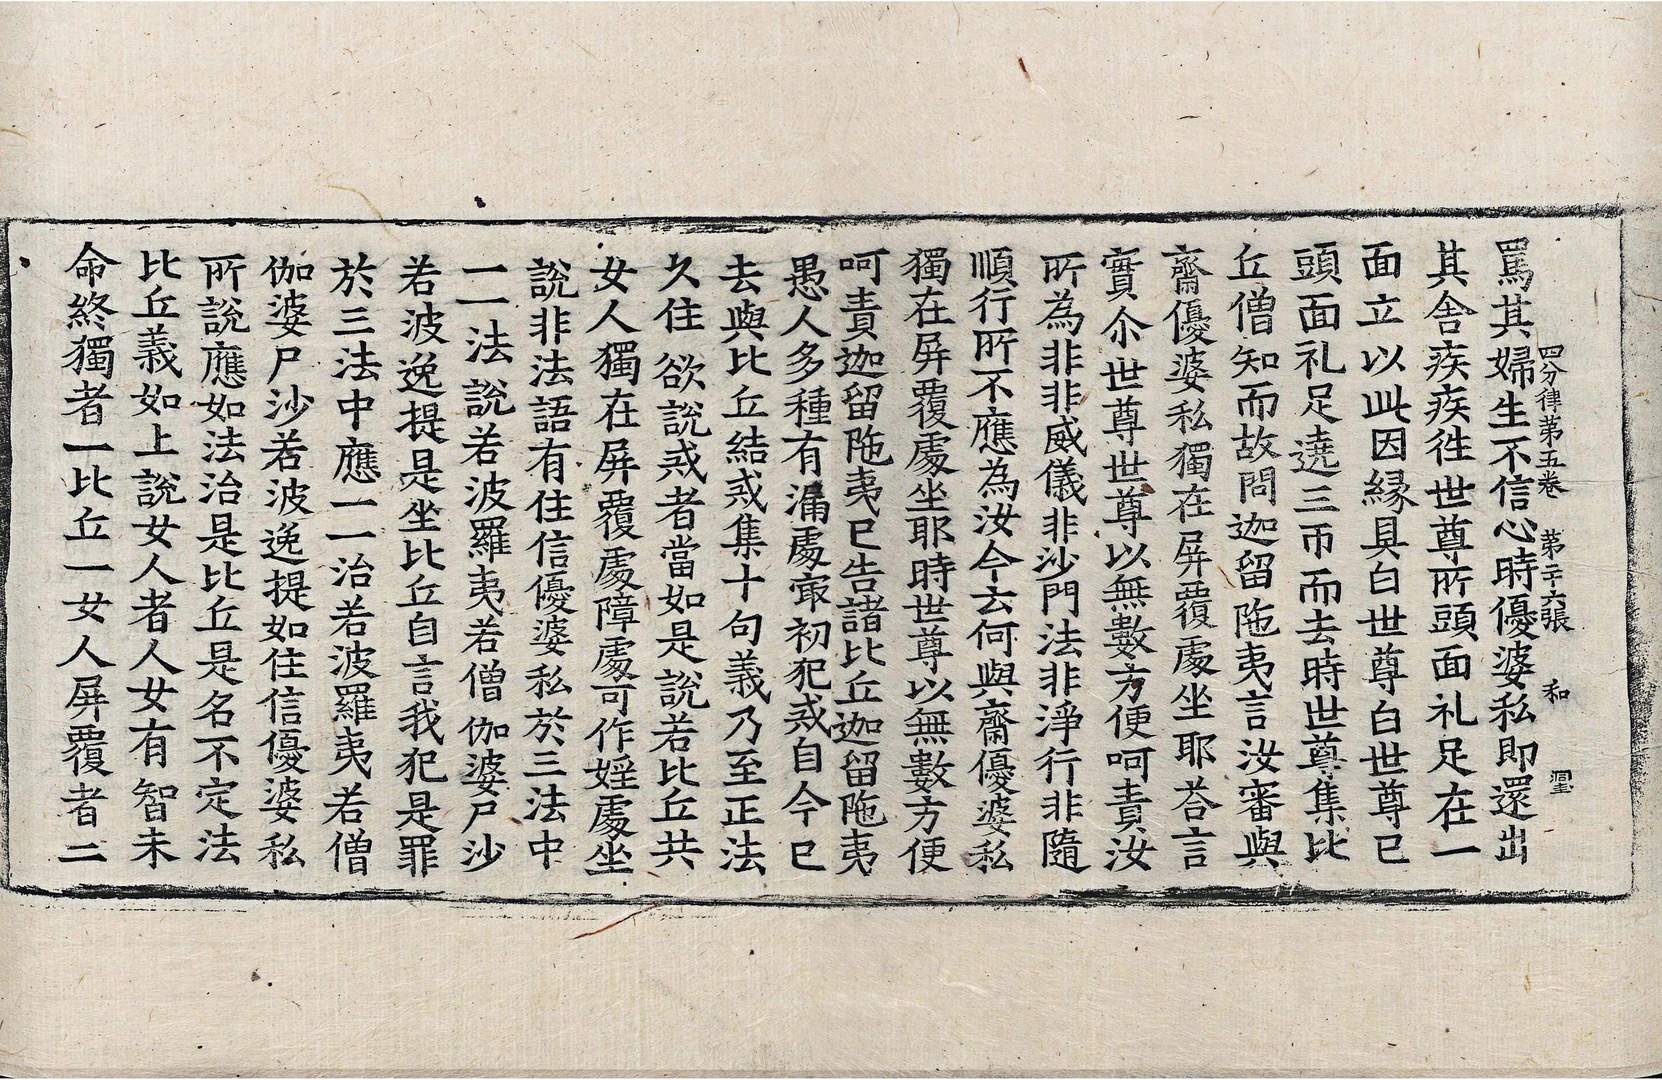 四分律第五卷　第二十六張　和
罵其婦生不信心時優婆私即還出
其舍疾疾徃世尊所頭面礼足在一
面立以此因縁具白世尊白世尊已
頭面礼足遶三帀而去時世尊集比
丘僧知而故問迦留陁夷言汝審與
齋優婆私獨在屏覆處坐耶荅言
實尒世尊世尊以無數方便呵責汝
所為非非威儀非沙門法非淨行非隨
順行所不應為汝今云何與齋優婆私
獨在屏覆處坐耶時世尊以無數方便
呵責迦留陁夷已告諸比丘迦留陁夷
愚人多種有漏處㝡初犯戒自今已
去與比丘結戒集十句義乃至正法
久住欲說戒者當如是說若比丘共
女人獨在屏覆處障處可作婬處坐
說非法語有住信優婆私於三法中
一一法說若波羅夷若僧伽婆尸沙
若波逸提是坐比丘自言我犯是罪
於三法中應一一治若波羅夷若僧
伽婆尸沙若波逸提如住信優婆私
所說應如法治是比丘是名不定法
比丘義如上說女人者人女有智未
命終獨者一比丘一女人屏覆者二